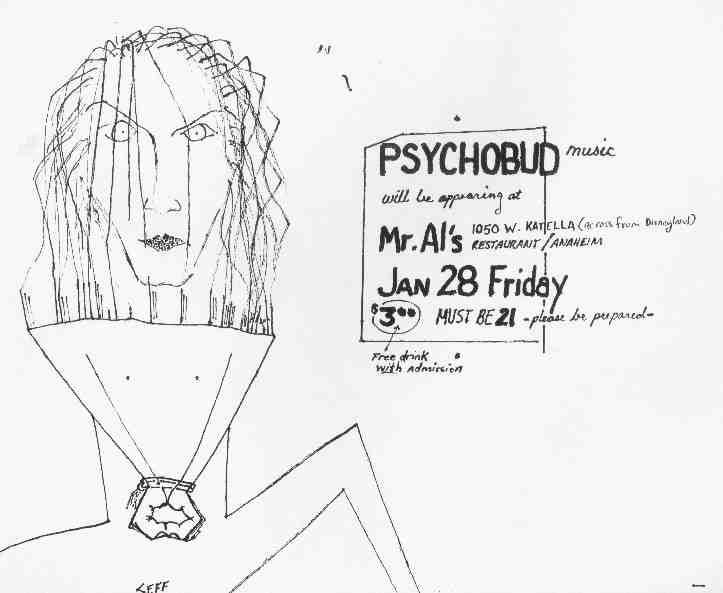 PSYCHOBUD music
will be appearing at
Mr. Al's 1050 W. KATELLA (across from Disneyland)
RESTAURANT / ANAHEIM
JAN 28 Friday
$3⁰⁰ MUST BE 21 - please be prepared -
Free drink
with Admission